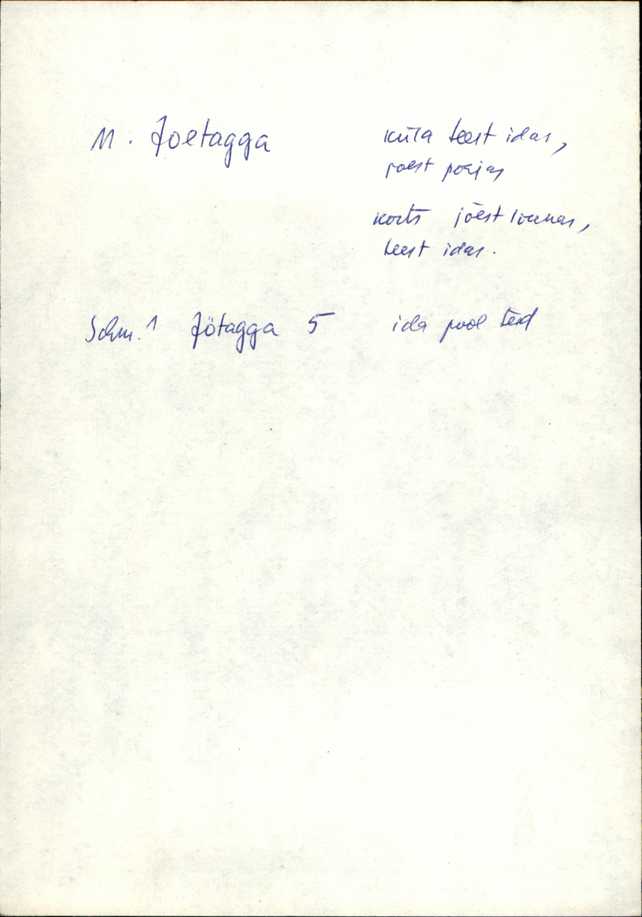 M. Joetagga
küla teest idas,
joest põhjas
korts jõest lõunas,
teest idas.
Schm. 1 Jötagga 5 ida pool teed